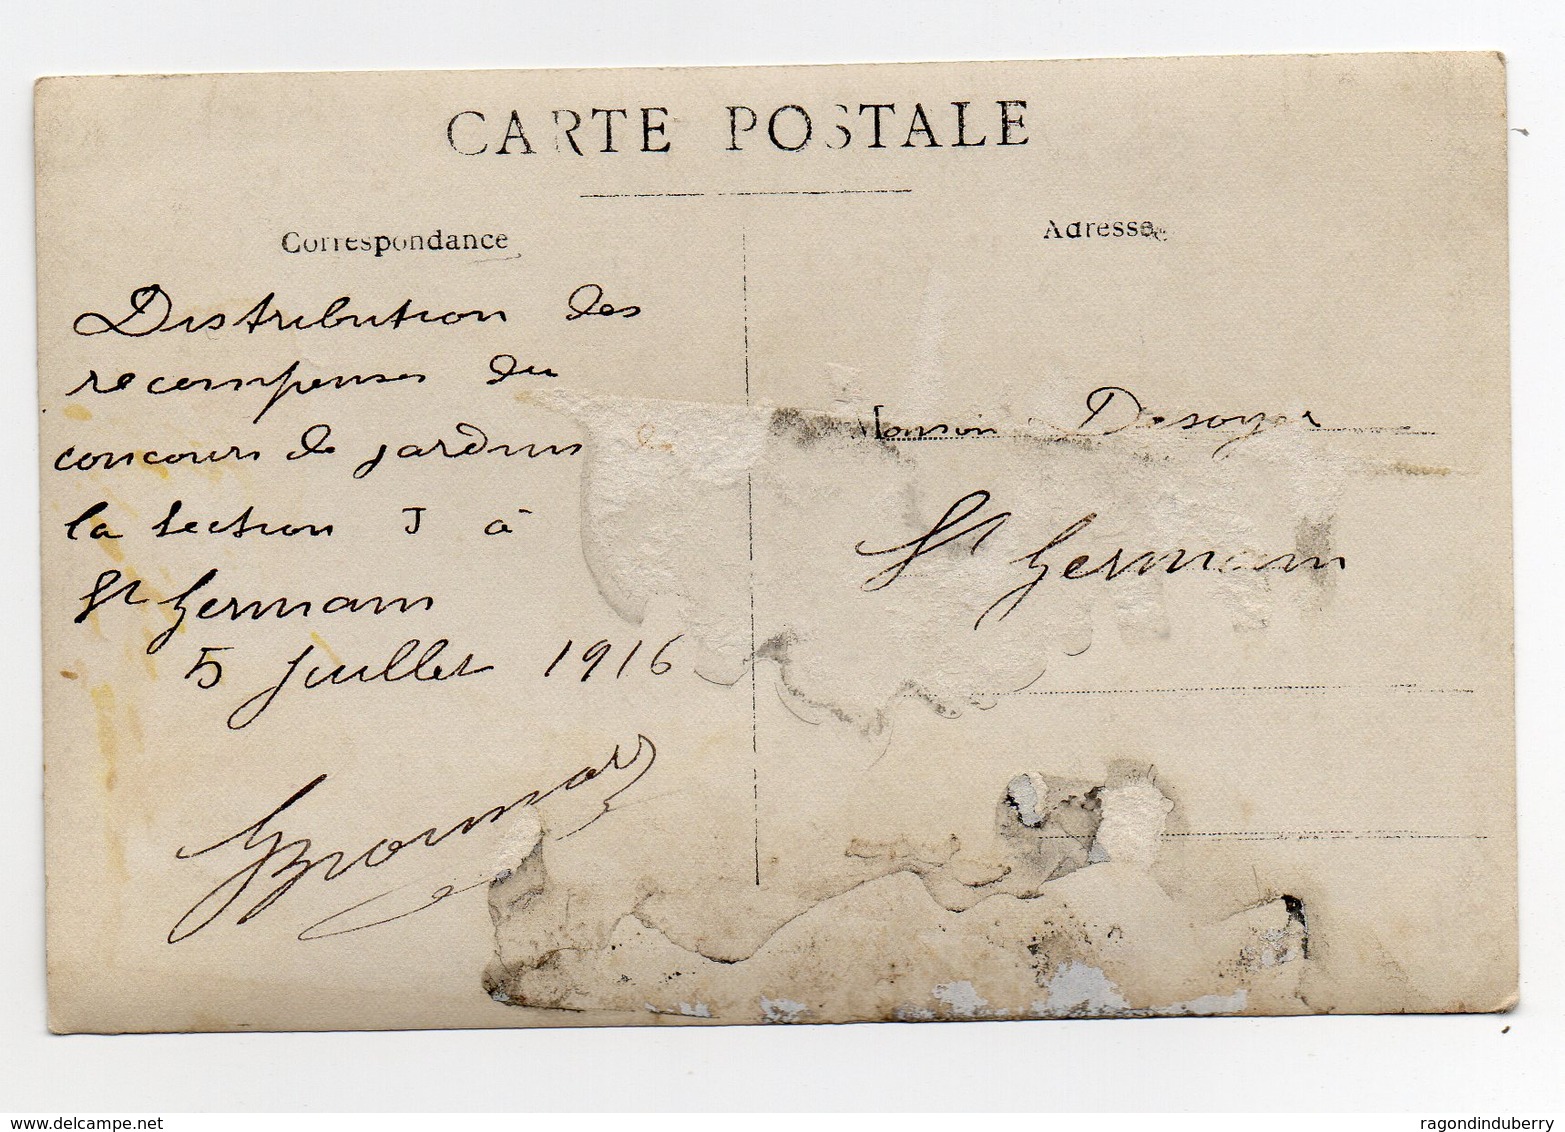 CARTE POSTALE
Correspondance
Adresse
Distribution des
recompenses du
concours de jardins de
la section J à
St Germain
5 Juillet 1916
Monsieur Desoyer
St Germain
www.delcampe.net
ragondinduberry